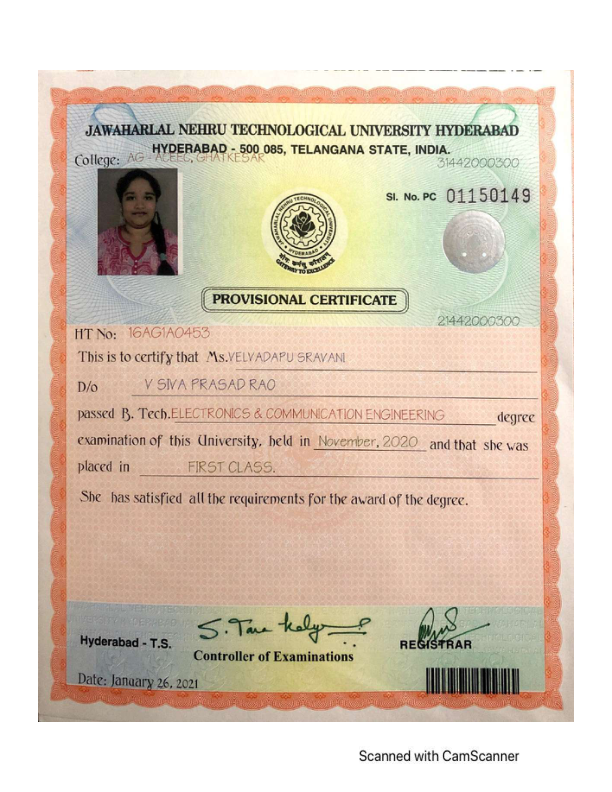 JAWAHARLAL NEHRU TECHNOLOGICAL UNIVERSITY HYDERABAD
HYDERABAD - 500 085, TELANGANA STATE, INDIA.
College: AG - ACEEC, GHATKESAR
31442000300
Sl. No. PC 01150149
JAWAHARLAL NEHRU TECHNOLOGICAL UNIVERSITY
HYDERABAD
योगः कर्मसु कौशलम्
GATEWAY TO EXCELLENCE
PROVISIONAL CERTIFICATE
21442000300
HT No: 16AG1A0453
This is to certify that Ms. VELVADAPU SRAVANI
D/o V SIVA PRASAD RAO
passed B. Tech. ELECTRONICS & COMMUNICATION ENGINEERING degree
examination of this University, held in November, 2020 and that she was
placed in FIRST CLASS.
She has satisfied all the requirements for the award of the degree.
Hyderabad - T.S.
Controller of Examinations
REGISTRAR
Date: January 26, 2021
Scanned with CamScanner